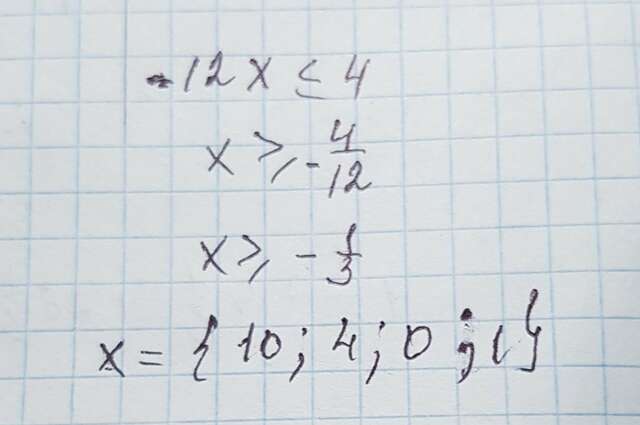 -12x ≤ 4
x ≥ -4/12
x ≥ -1/3
x = {10; 4; 0; 1}